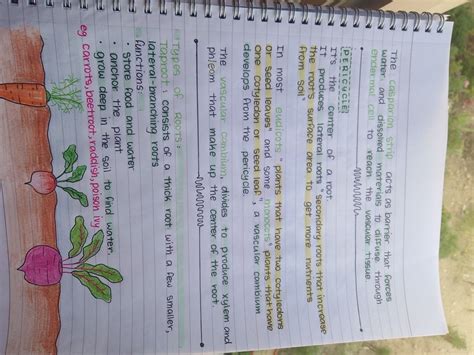 The casparian strip acts as barrier that forces
water and dissolved materials to diffuse through
endermal cell to reach the vascular tissue.
PERICYCLE
It's the center of a root.
It produces lateral roots "secondary roots that increase
the root's surface area to get more nutrients
from soil"
In most eudicots "plants that have two cotyledons
or seed leaves" and some monocots "plants that have
one cotyledon or seed leaf", a vascular cambium
develops from the pericycle.
The vascular cambium divides to produce xylem and
phloem that make up the center of the root.
Types of Roots:
Taproot: consists of a thick root with a few smaller,
lateral-branching roots
function:
• store food and water
• anchor the plant
• grow deep in the soil to find water.
eg carrots, beetroot, raddish, poison ivy